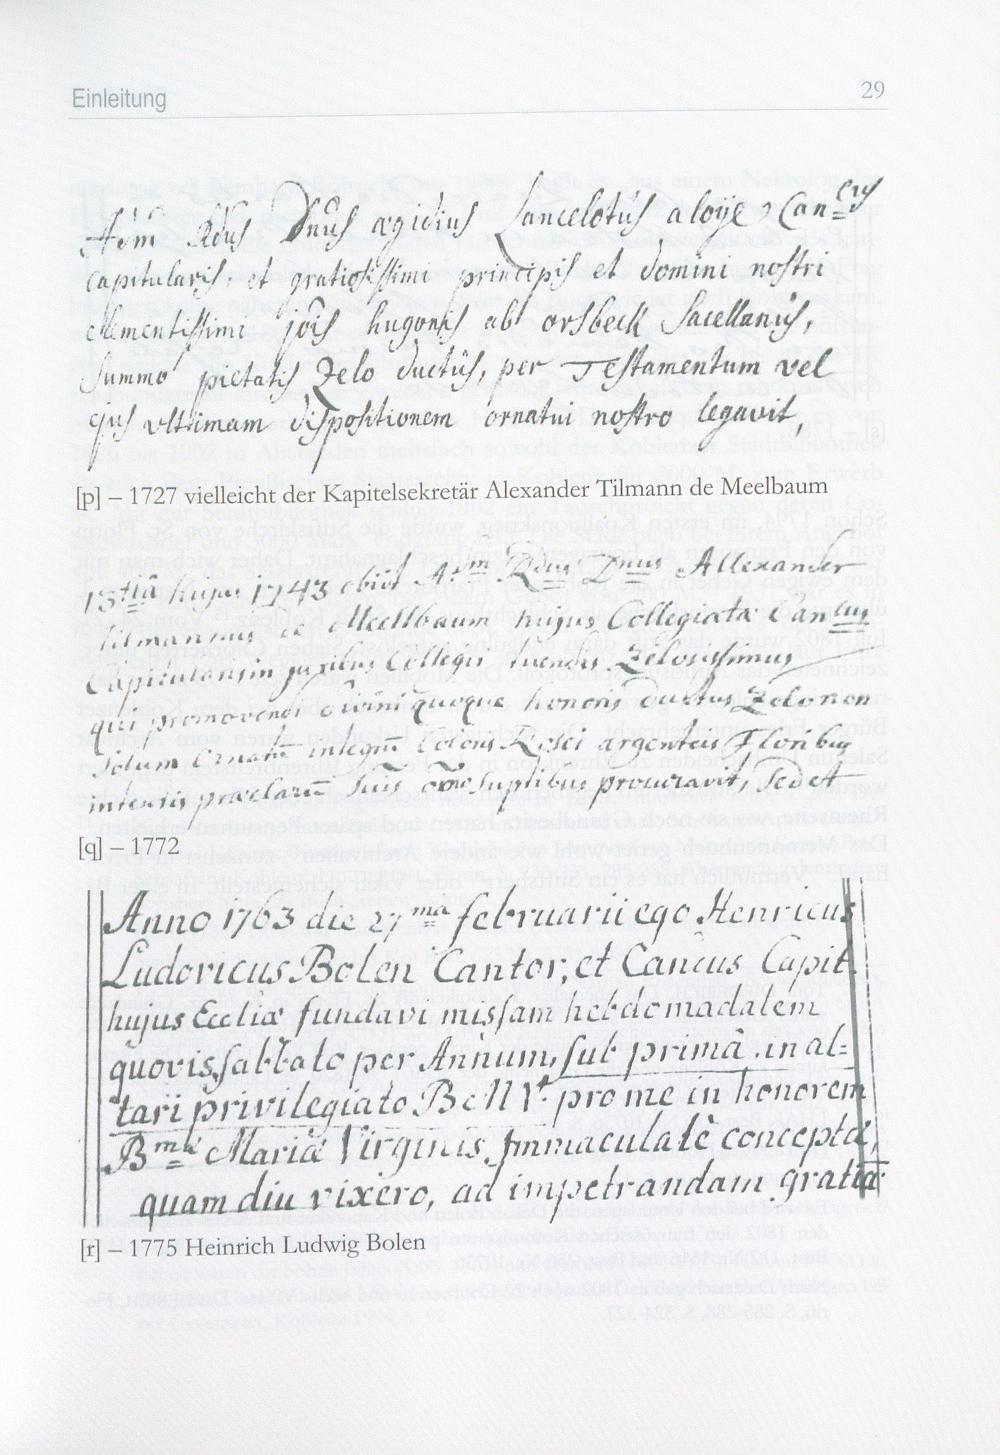 Einleitung 29
Adm Rdus Dnus ægidius Lancelotus a loÿe, Can=cus
capitularis, et gratiosissimi principis et domini nostri
clementissimi jois hugonis ab orsbeck Sacellanus,
Summo pietatis Zelo ductus, per Testamentum vel
ultimam dispositionem ornatui nostro legavit,
[p] – 1727 vielleicht der Kapitelsekretär Alexander Tilmann de Meelbaum
hujus 1743 obiit Adm Rdus Dnus Allexander
Tilmannus de Meelbaum hujus Collegiatæ Can=cus
Capitularis in Collegii tuendis Zelosissimus
qui promovendi divini quoque honoris ductus Zelo non
solum Ornatū integrū Coloris Rosei argenteis Floribus
intextis præclarū suis sūptibus procuravit, Sed et
[q] – 1772
Anno 1763 die 27ma februarii ego Henricus
Ludovicus Bolen Cantor, et Cancus Capit.
hujus Eccliæ fundavi missam hebdomadalem
quovis sabbato per Annum, sub primâ in al=
tari privilegiato B M V. pro me in honorem
Bmæ Mariæ Virginis Immaculatè conceptæ,
quam diu vixero, ad impetrandam gratia
[r] – 1775 Heinrich Ludwig Bolen